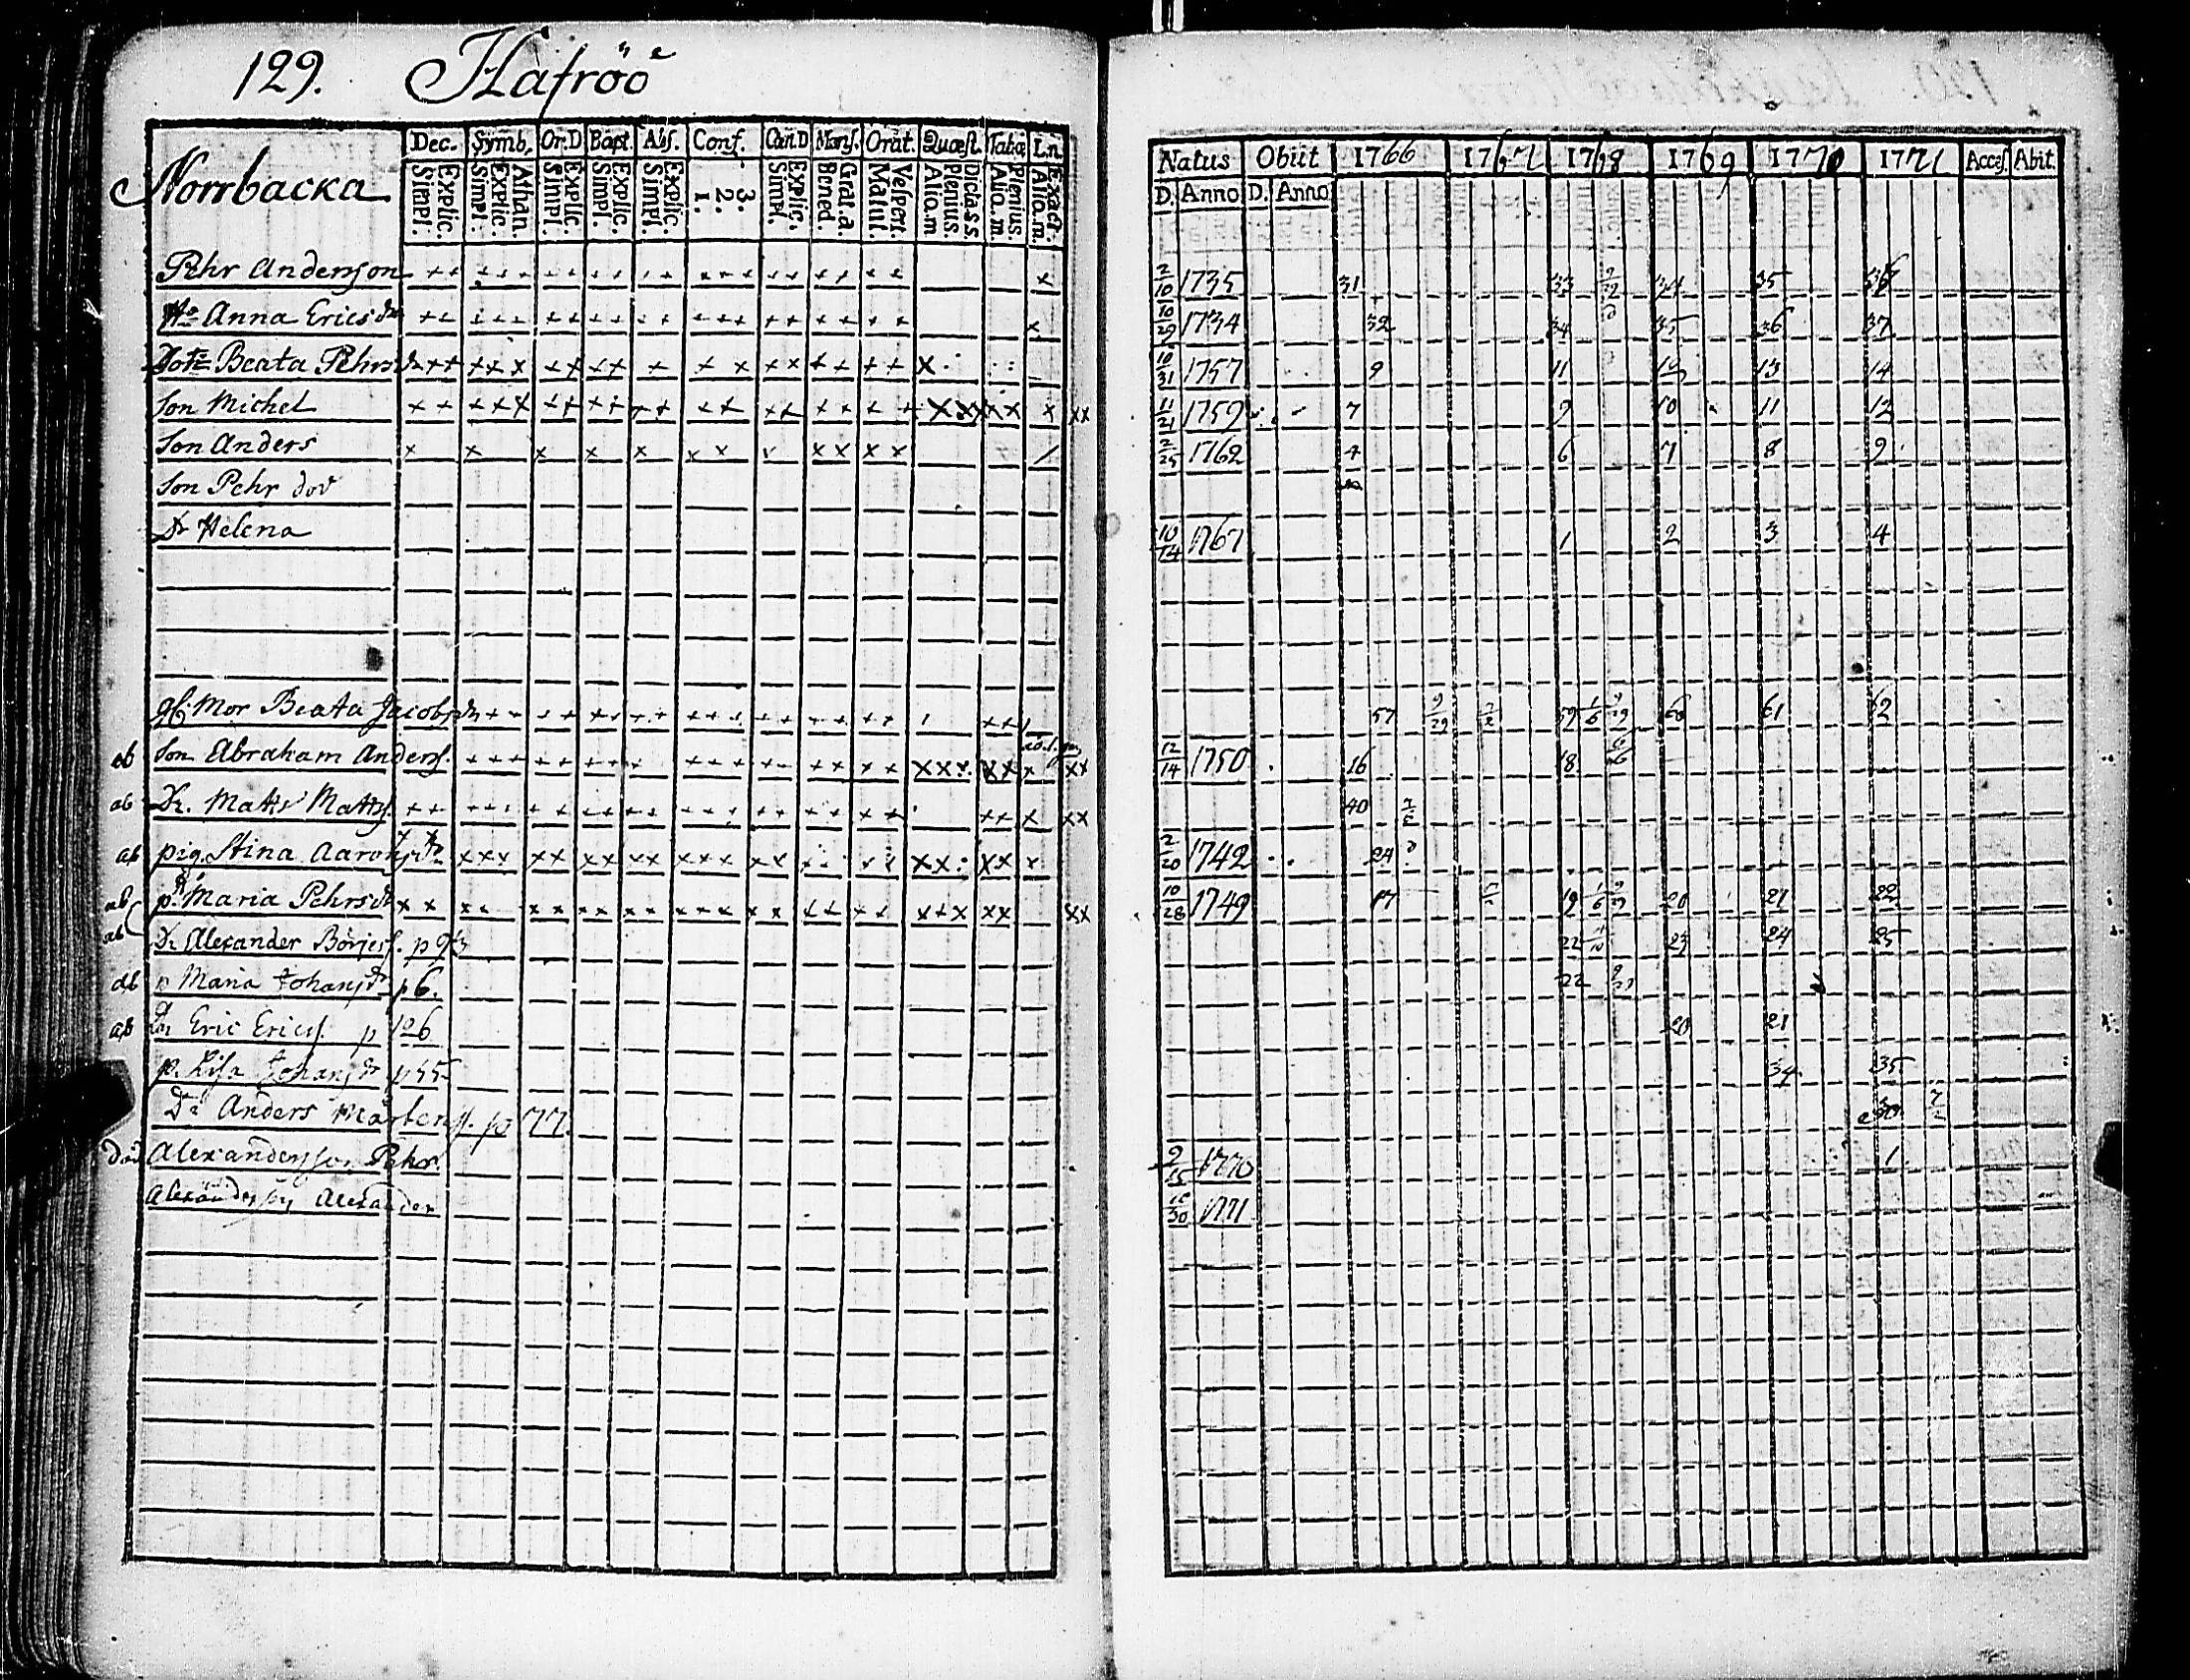 129. Hafröö
Norrbacka
Dec. Symb. Or.D Bapt. Abs. Conf. Cæn.D Mens. Orat. Quæst. Tabæ L.n
Explic. Simpl. Athan. Explic. Simpl. Explic. Simpl. Explic. Simpl. Explic. Simpl. 3. 2. 1. Explic. Simpl. Grat.a Bened. Vespert. Matut. Dicta s.s. Plenius. Alio.m Plenius. Alio.m. Exact. Alio.m.
Natus Obiit 1766 1767 1768 1769 1770 1771 Acces. Abit.
D. Anno D. Anno
Pehr Andersson 2/10 1735 31 33 34 35 36
H:o Anna Ericsdr 10/29 1734 32 34 35 36 37
Dotr Beata Pehrsdr 10/31 1757 9 11 12 13 14
Son Michel 11/21 1759 7 9 10 11 12
Son Anders 2/25 1762 4 6 7 8 9
Son Pehr död
Dr Helena 10/14 1767 1 2 3 4
Mor Beata Jacobsdr 57 9/29 59 60 61 62
ab Son Abraham Anders. 12/14 1750 16 18
ab Dr. Matts Matts. 40
ab pig. Stina Aaronsdr 2/20 1742 24
ab p. Maria Pehrsdr 10/28 1749 17 19 20 21 22
ab Dr Alexander Börjes. p 93 22 23 24 25
ab p Maria Johansdr p 6. 22
ab Dr Eric Erics. p 106 20 21
p. Lisa Johansdr p 55 34 35
Dr Anders Mårtens. p 77.
död Alexandersson Pehr. 9/15 1770 1
Alexandersson Alexander 1771